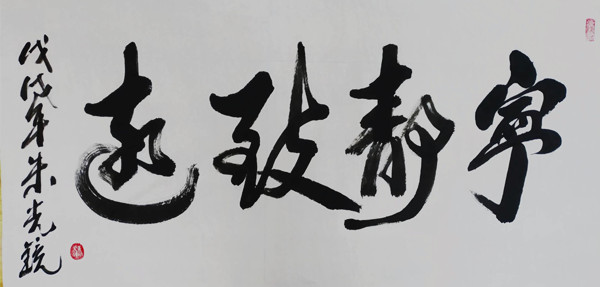 寧靜致遠
戊戌年朱光鏡